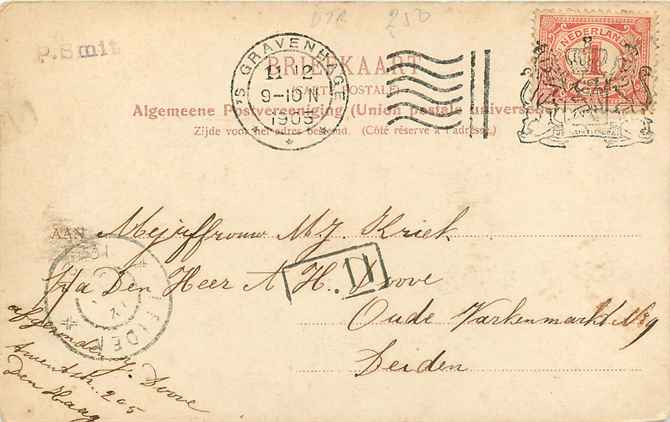 UTR 250
P. Smit
'S GRAVENHAGE
12
9-10 N
1903
NEDERLAND
1
BRIEFKAART
(CARTE POSTALE)
Algemeene Postvereeniging (Union postale universelle)
Zijde voor het adres bestemd. (Côté réservé à l'adresse.)
AAN Mejuffrouw M J. Kriek
p/a Den Heer A H. Doove
Oude Varkenmarkt No 9
Leiden
LEIDEN
afzender J. Doove
205
Den Haag